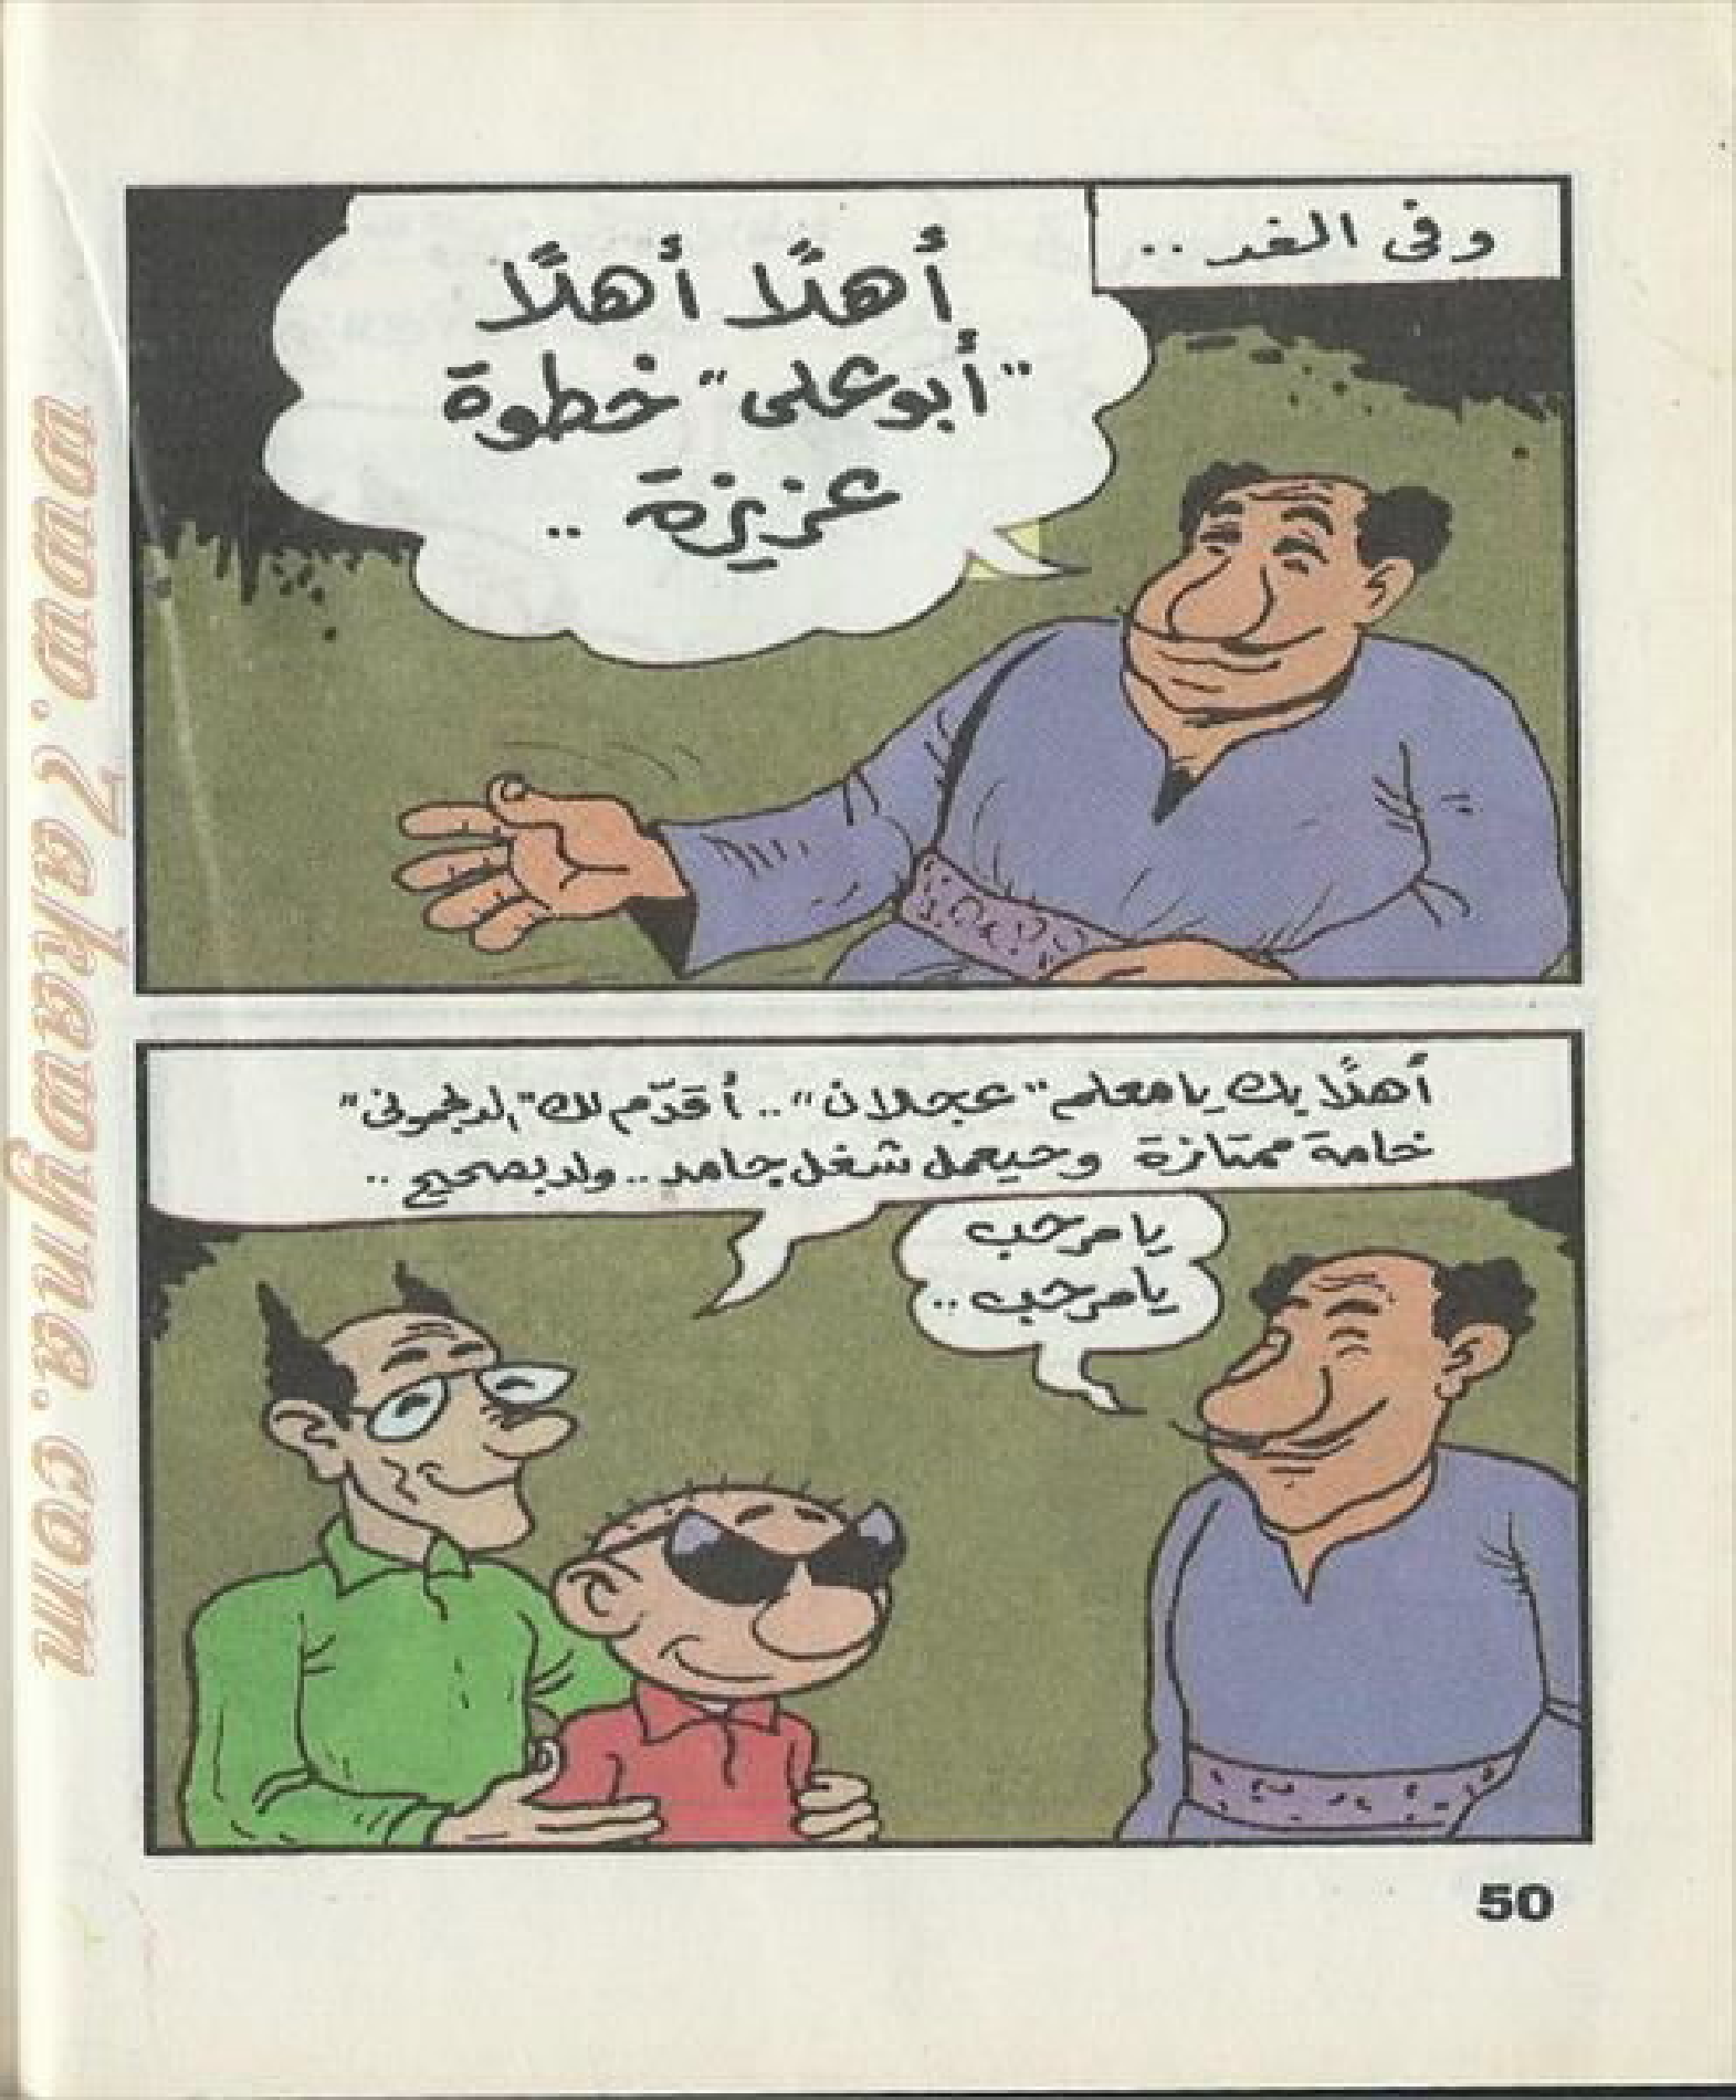 وفى الغد ..
أهلًا أهلًا
"أبو على" خطوة
عزيزة ..
أهلًا بك يا معلم "عجلان" .. أقدّم لك "الدلجمونى"
خامة ممتازة وحيعمل شغل جامد .. ولد بصحيح ..
يا مرحب
يا مرحب ..
50
www.7akawyna.com